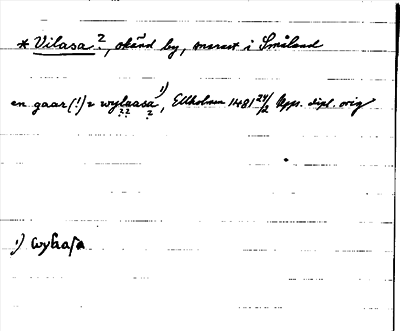 * Vilasa ?, okänd by, snarast i Småland
en gaar (!) i wylaasa 1), Ekholmen 1481 24/2 Upps. dipl. orig
?? ?
1) wylaasa